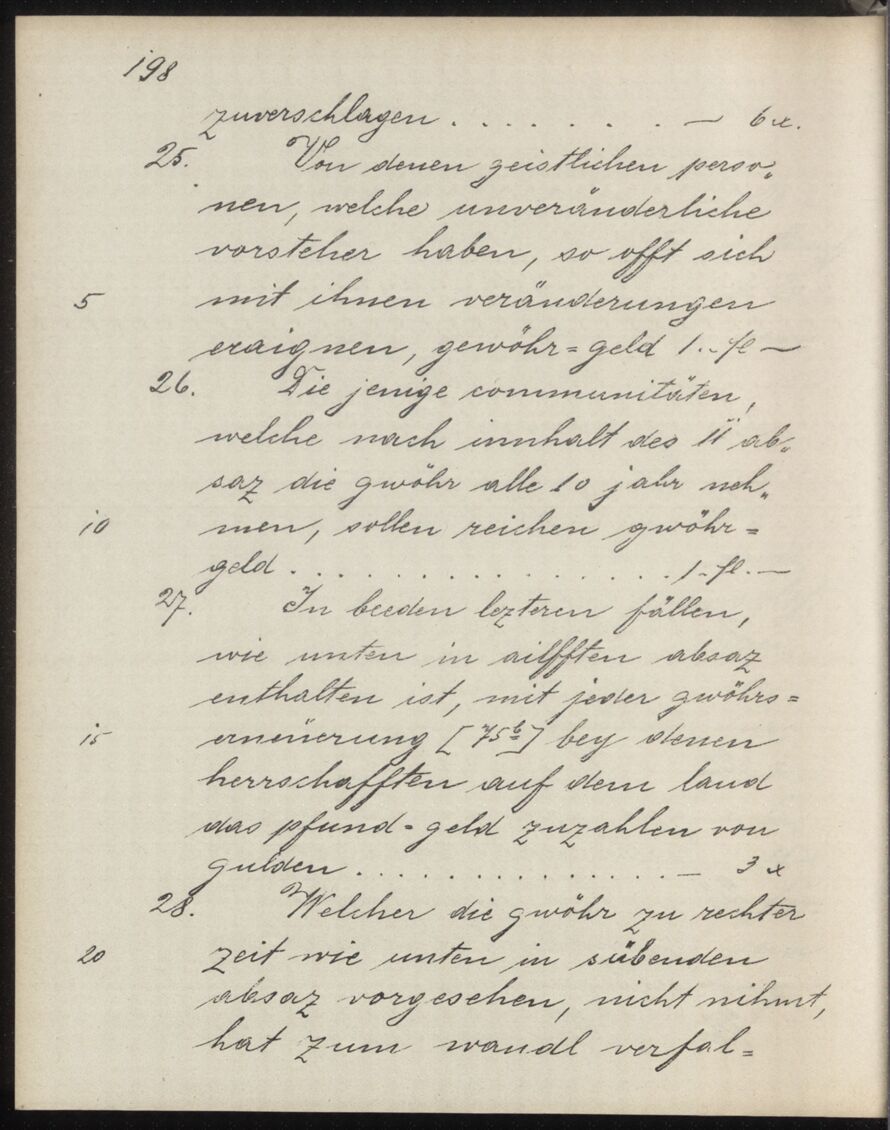 198
zuverschlagen . . . . . . . — 6 x.
25. Von denen geistlichen perso„
nen, welche unveränderliche
vorsteher haben, so offt sich
5 mit ihnen veränderungen
eraignen, gewöhr=geld 1.-fl —
26. Die jenige communitäten,
welche nach innhalt des 11 ab„
saz die gwöhr alle 10 jahr neh„
10 men, sollen reichen gwöhr=
geld . . . . . . . . . . . . . . . 1-fl.—
27. In beeden lezteren fällen,
wie unten in ailfften absaz
enthalten ist, mit jeder gwöhrs=
15 erneüerung [75b] bey denen
herrschafften auf dem land
das pfund=geld zuzahlen von
gulden . . . . . . . . . . . . . — 3 x
28. Welcher die gwöhr zu rechter
20 zeit wie unten in sübenden
absaz vorgesehen, nicht nihmt,
hat zum wandl verfal=